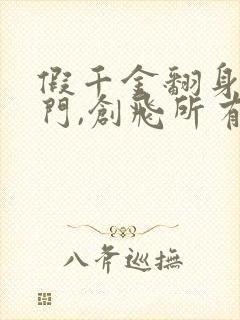 假千金翻身
門,創飛所有
八斧巡撫